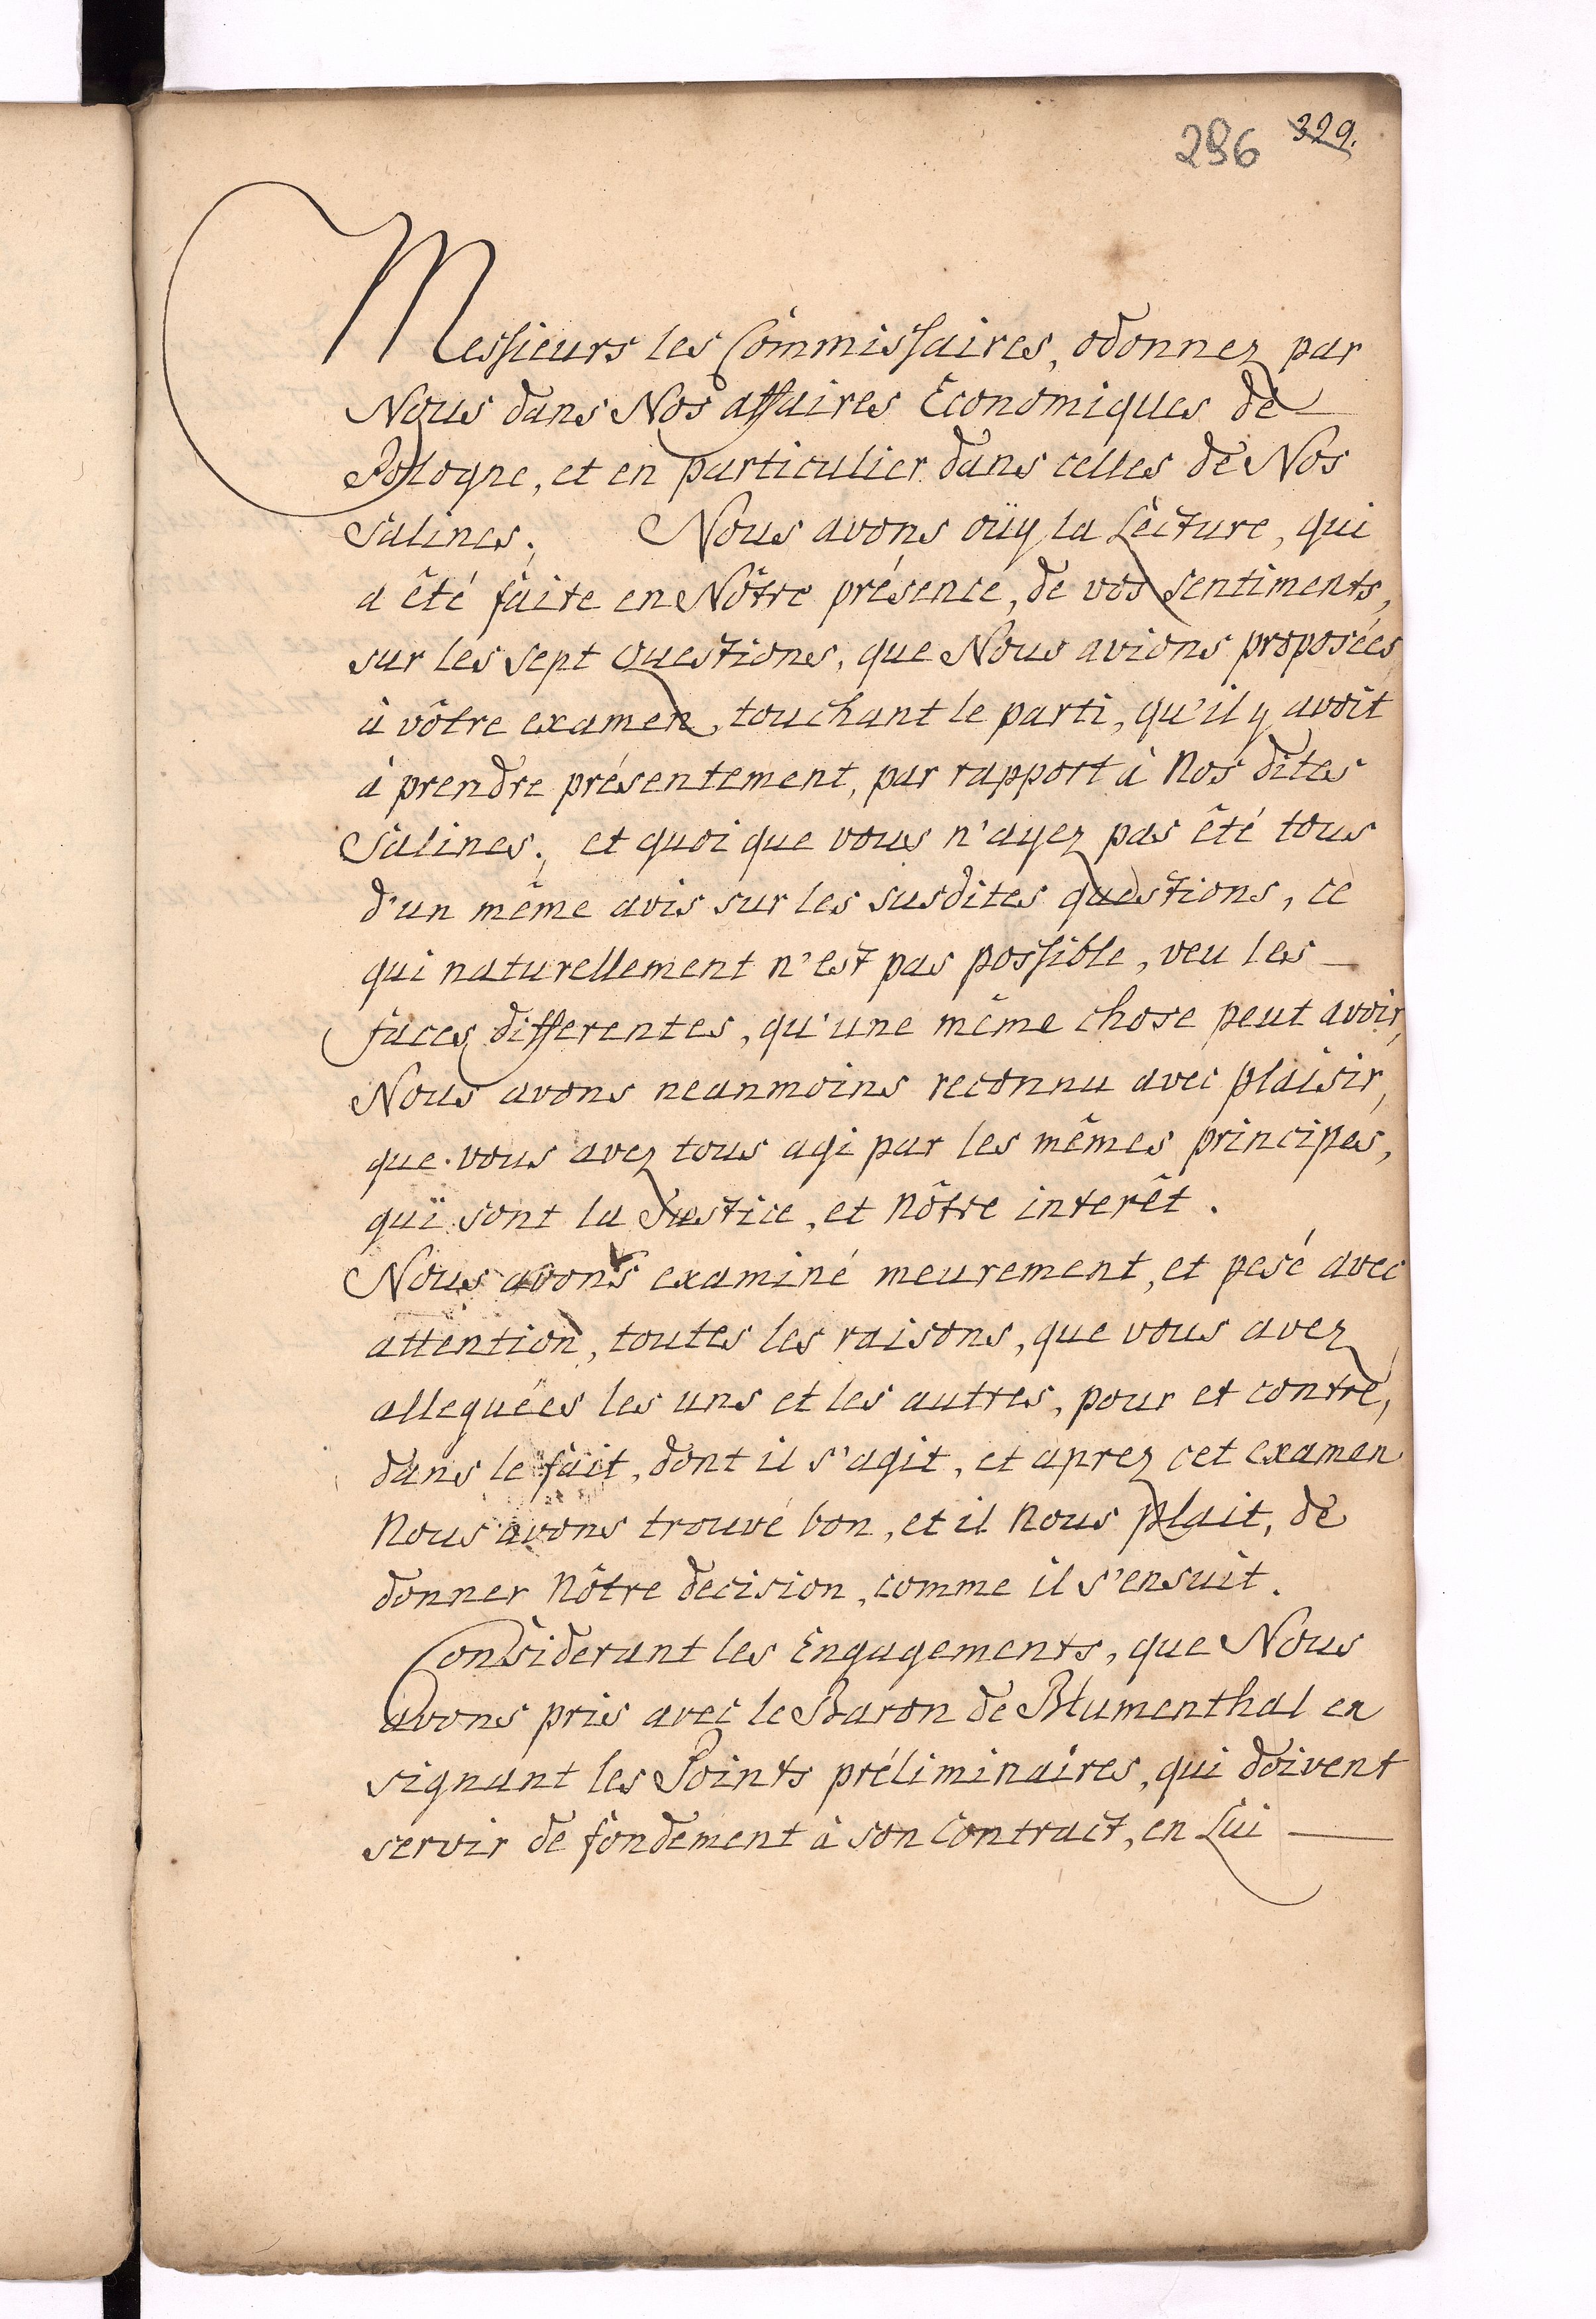 296 329.
Messieurs les Commissaires, odonnez par
Nous dans Nos affaires Economiques de
Pologne, et en particulier dans celles de Nos
Salines; Nous avons oüy la Lecture, qui
a êté faite en Nôtre présence, de vos sentiments,
sur les sept questions, que Nous avions proposées
à vôtre examen, touchant le parti, qu'il y avoit
à prendre présentement, par rapport à Nos dites
Salines; et quoi que vous n'ayez pas êté tous
d'un même avis sur les susdites questions, ce
qui naturellement n'est pas possible, veu les
faces differentes, qu'une même chose peut avoir,
Nous avons neanmoins reconnu avec plaisir,
que vous avez tous agi par les mêmes principes,
quï sont la Justice, et Nôtre interêt.
Nous avons examiné meurement, et pesé avec
attention, toutes les raisons, que vous avez
alleguées les uns et les autres, pour et contre,
dans le fait, dont il s'agit, et aprez cet examen
Nous avons trouvé bon, et il Nous plait, de
donner Nôtre decision, comme il s'ensuit.
Considerant les Engagements, que Nous
avons pris avec le Baron de Blumenthal en
signant les Points préliminaires, qui doivent
servir de fondement à son Contract, en Lui